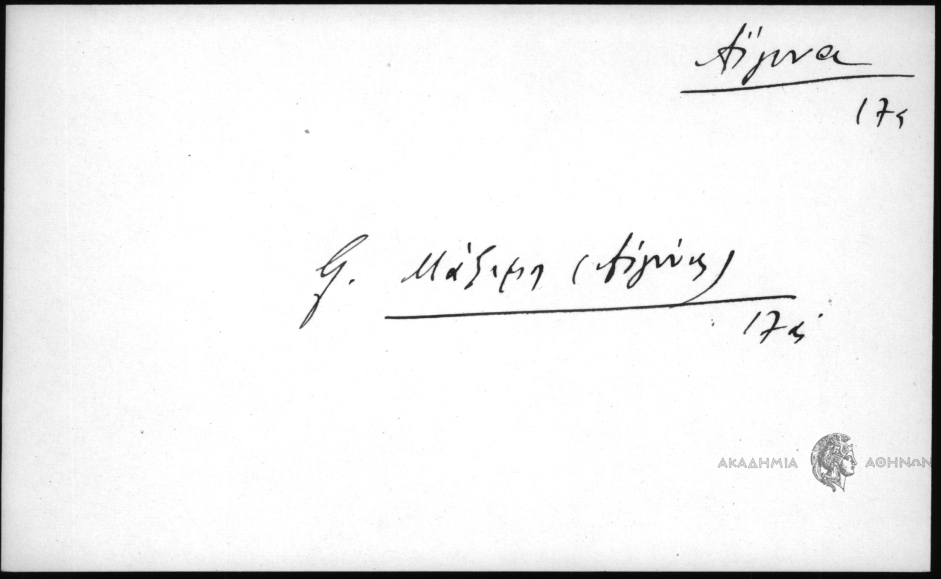 Αἴγινα
17ς
G. Μάξιμη (Αἰγίνης)
17ς
ΑΚΑΔΗΜΙΑ ΑΘΗΝΩΝ